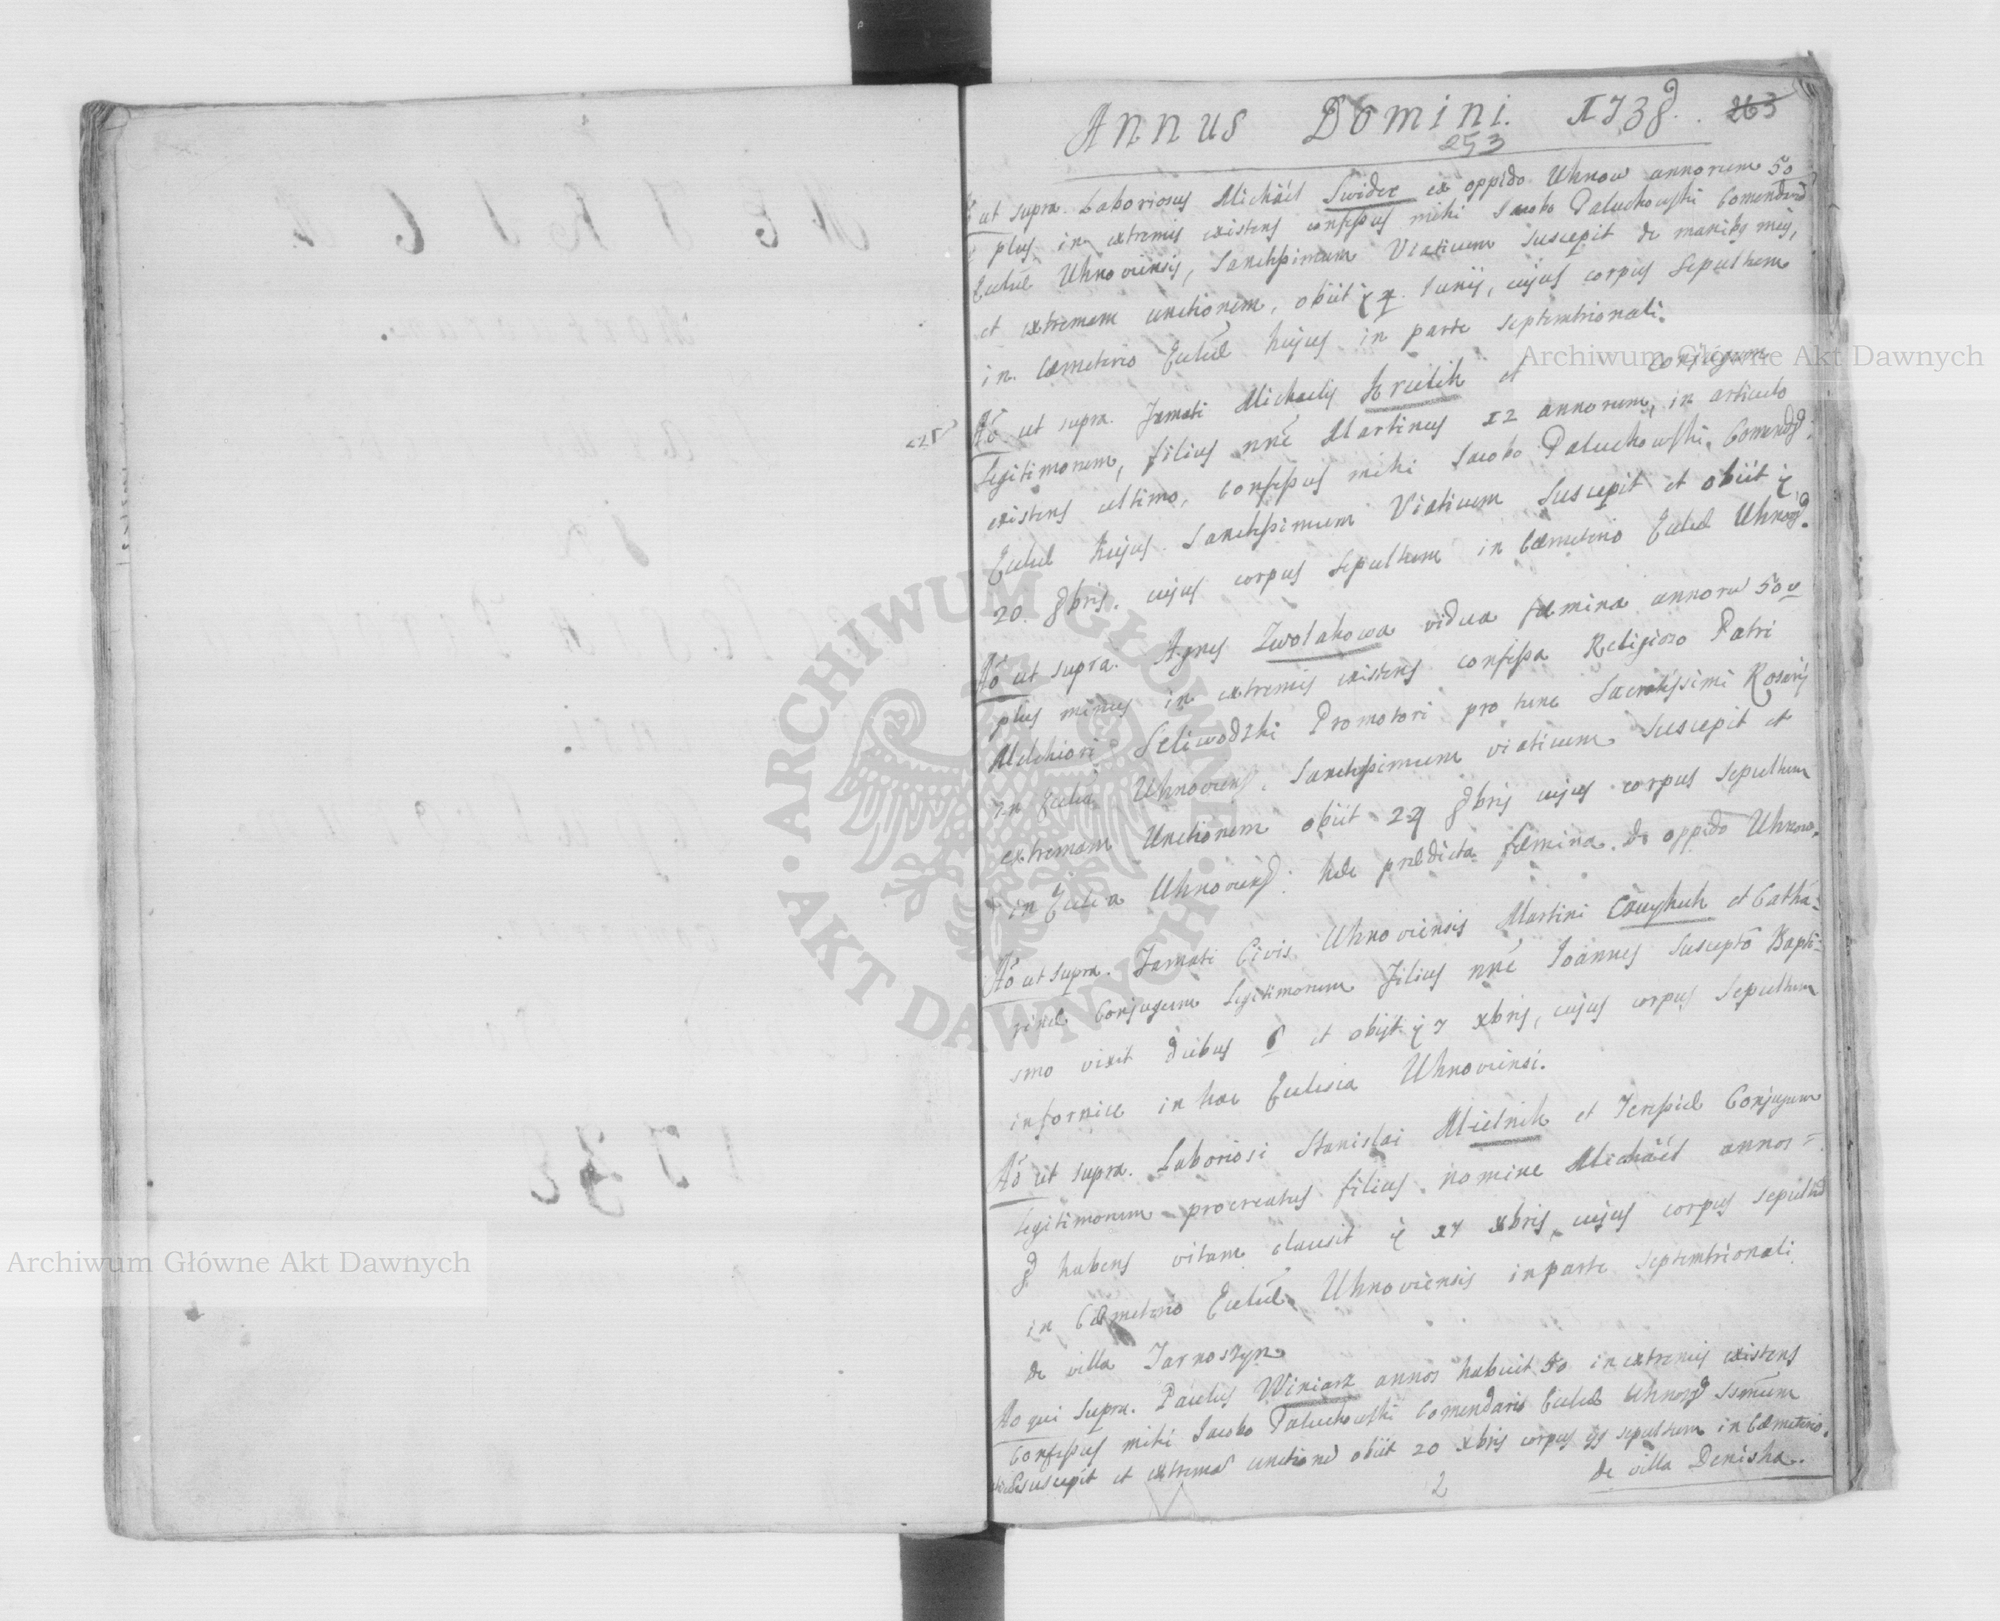 Annus Domini. 1738.
263
253
ut supra. Laboriosus Michäel Swider ex oppido Uhnow annorum 50
plus in extremis existens confessus mihi Jacobo Paluchowski Comendario
Eccliæ Uhnoviensis, Sanctissimum Viaticum suscepit de manibs meis,
et extremam unctionem, obiit Junij, cujus corpus sepultum
in Cæmeterio Eccliæ hujus in parte septemtrionali.
Aō ut supra. Famati Michaelis Krulik et conjugum
legitimorum, filius nnē Martinus 12 annorum, in articulo
existens ultimo, confessus mihi Jacobo Paluchowski Comendō
Eccliæ hujus Sanctissimum Viaticum suscepit et obiit
20. 8bris. cujus corpus sepultum in Cæmeterio Eccliæ Uhnov.
Aō ut supra. Agnes Zwolakowa vidua fæmina annorū 50
plus minus in extremis existens confessa Religioso Patri
Melchiori Seliwodzki Promotori pro tunc Sacratissimi Rosarij
in Ecclia Uhnoviens. Sanctissimum viaticum suscepit et
extremam Unctionem obiit 29 8bris cujus corpus sepultum
in Ecclia Uhnoviens. hæc prædicta fæmina de oppido Uhnow.
Aō ut supra. Famati Civis Uhnoviensis Martini et Catha-
rinæ Conjugum legitimorum filius nnē Joannes suscepto Bapti-
smo vixit diebus 6 et obijt 7 xbris, cujus corpus sepultum
in fornice in hac Ecclesia Uhnoviensi.
Aō ut supra. Laboriosi Stanislai Mielnik et Teressiæ Conjugum
legitimorum procreatus filius nomine Michäel annos
8 habens vitam clausit 17 xbris cujus corpus sepultū
in Cæmeterio Eccliæ Uhnoviensis in parte septemtrionali
de villa Tarnoszyn
Ao qui supra. Paulus Winiarz annos habuit 50 in extremis existens
confessus mihi Jacobo Paluchowski Comendario Eccliæ Uhnov. SSmum
suscepit et extremā unctionē obiit 20 xbris corpus sepultum in Cæmeterio.
de villa Deniska.
2
Archiwum Główne Akt Dawnych
Archiwum Główne Akt Dawnych
ARCHIWUM GŁÓWNE
AKT DAWNYCH